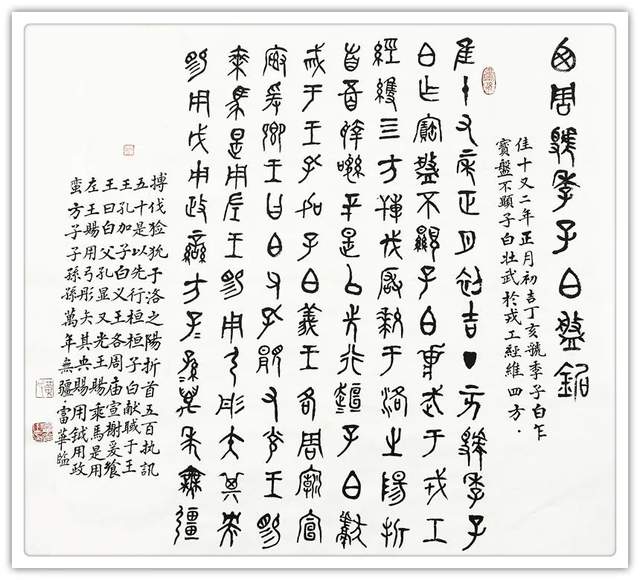 西周虢季子白盤銘
佳十又二年正月初吉丁亥虢季子白乍
寶盤不顯子白壯武於戎工經維四方·
隹十又二年正月初吉丁亥虢季子
白乍寶盤不顯子白壯武于戎工
經維四方搏伐玁狁于洛之陽折
首五百執訊五十是以先行桓子白獻
聝于王孔加子白義王各周廟宣
榭爰鄉王曰白父孔顯又光王賜
乘馬是用左王賜用弓彤矢其央
賜用戉用政蠻方子孫萬年無疆
搏伐猃狁于洛之陽折首五百执訊
五十是以先行桓桓子白献聝于王
王孔加子白义王各周庙宣榭爰飨
王曰白父孔显又光王賜乘馬是用
左王賜用弓彤矢其央賜用鉞用政
蛮方子子孫孫萬年無疆·富華臨